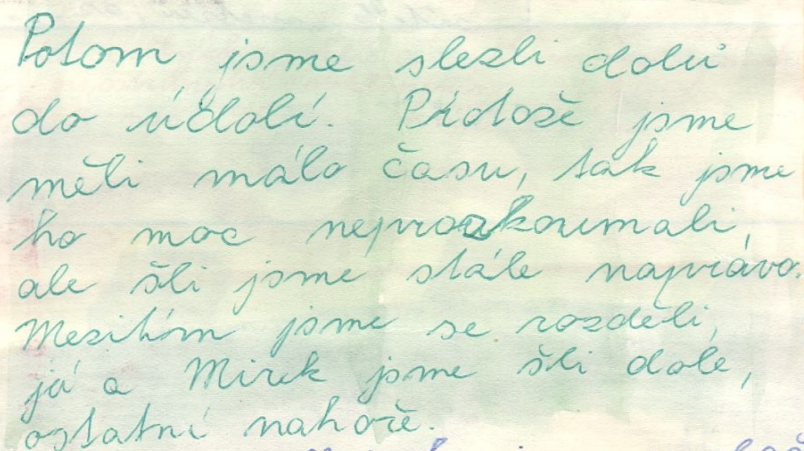 Potom jsme slezli dolů
do údolí. Prdože jsme
měli málo času, tak jsme
ho moc neprozkoumali,
ale šli jsme stále napravo.
Mezitím jsme se rozděli,
já a Mirek jsme šli dole,
ostatní nahoře.